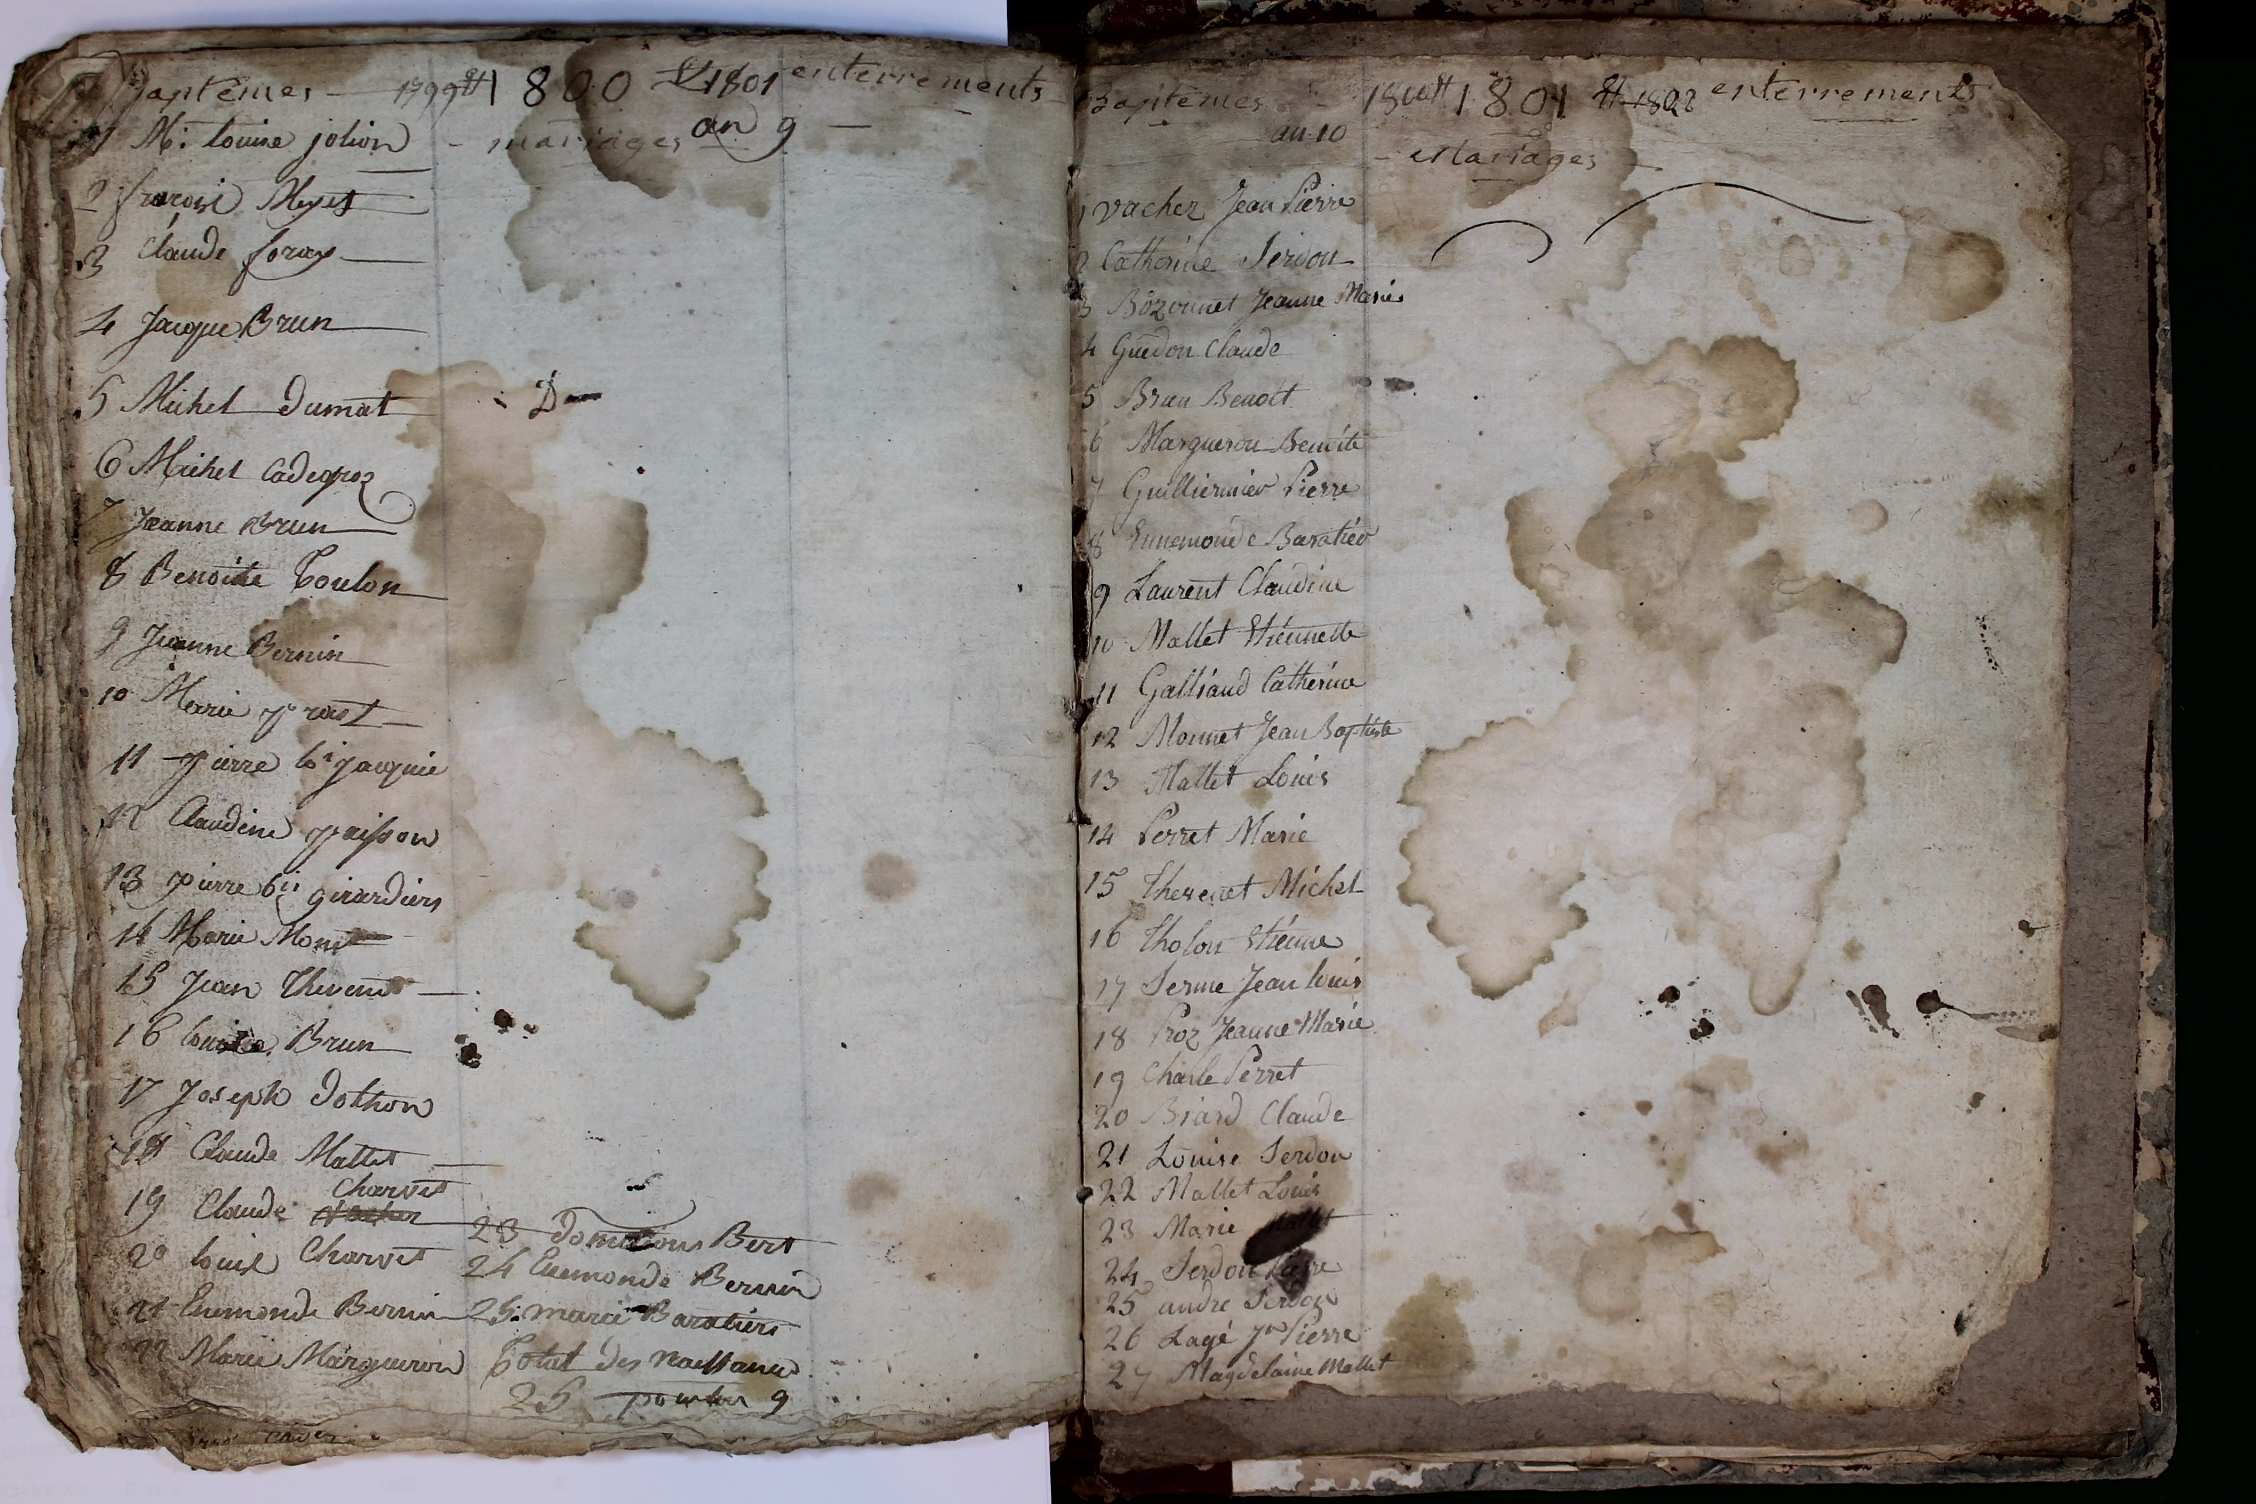 Baptêmes — 1799 et 1800 et 1801 enterrements
- mariages an 9 —
1 M: Louise jolion
2 francois Meyes
3 Claude foray
4 Jacque Brun
5 Michel dumat D
6 Michel Cadegroz
7 Jeanne Brun
8 Benoite Coulon
9 Jeanne Bernin
10 Marie prost
11 pierre jacquie
12 Claudine paisson
13 pierre girardiers
14 Marie Monet
15 Jean Thevenet
16 Brun
17 Joseph dothon
18 Claude Mallet
Charvet
19 Claude
20 Louise Charvet
21 Enemonde Bernin
22 Marie Margueron
23 Bert
24 Enemonde Bernin
25 marie Baratiers
Total des naissance
25 pour lan 9
Baptêmes - 1800 et 1801 et 1802 enterrements
an 10
- Mariages -
1 Vachez Jean Pierre
2 Catherine Serdon
3 Bozonnet Jeanne Marie
4 Guedon Claude
5 Brun Benoit
6 Margueron Benoite
7 Guillierminer Pierre
8 Ennemonde Baratier
9 Laurent Claudine
10 Mallet Etiennette
11 Galliand Catherine
12 Monnet Jean Baptiste
13 Mallet Louis
14 Perret Marie
15 Thevenet Michel
16 Tholon Etienne
17 Serme Jean louis
18 Proz Jeanne Marie
19 Charle Perret
20 Biard Claude
21 Louise Serdon
22 Mallet Louis
23 Marie Mallet
24 Serdon Pierre
25 andre Serdon
26 Lagé Jn Pierre
27 Magdelaine Mallet